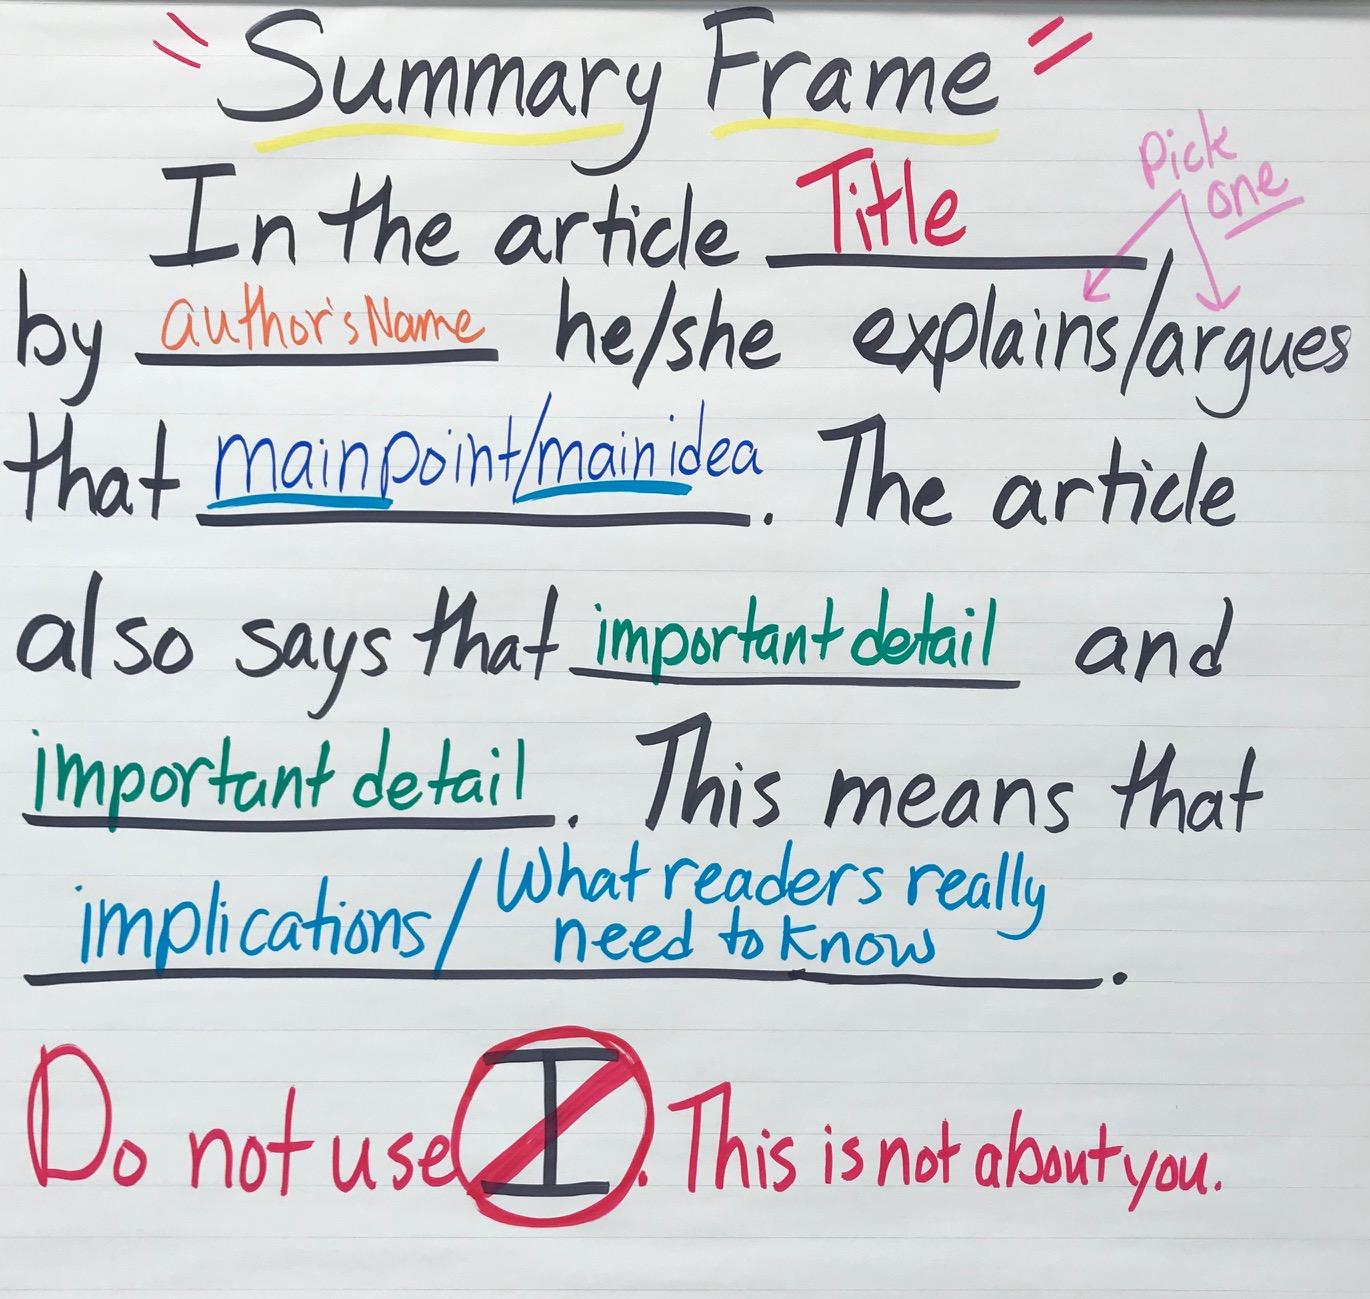 "Summary Frame"
Pick
one
In the article Title
by author's Name he/she explains/argues
that main point/main idea. The article
also says that important detail and
important detail. This means that
implications/What readers really
need to know.
Do not use I. This is not about you.